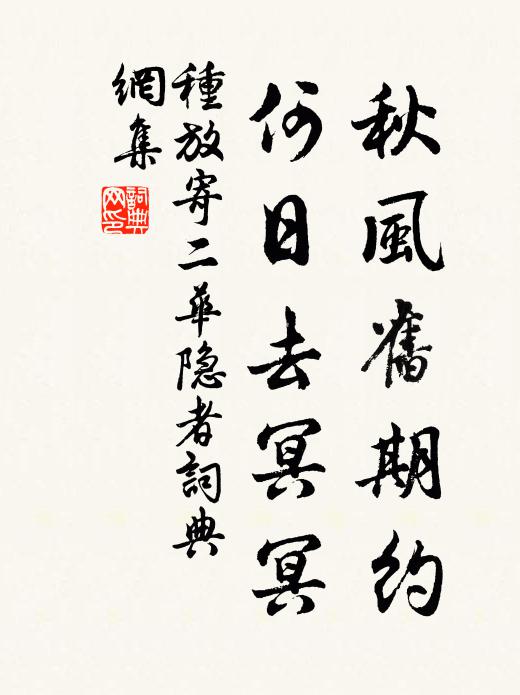 秋風舊期約
何日去冥冥
種放寄二華隐者詞典
網集
詞典
网印